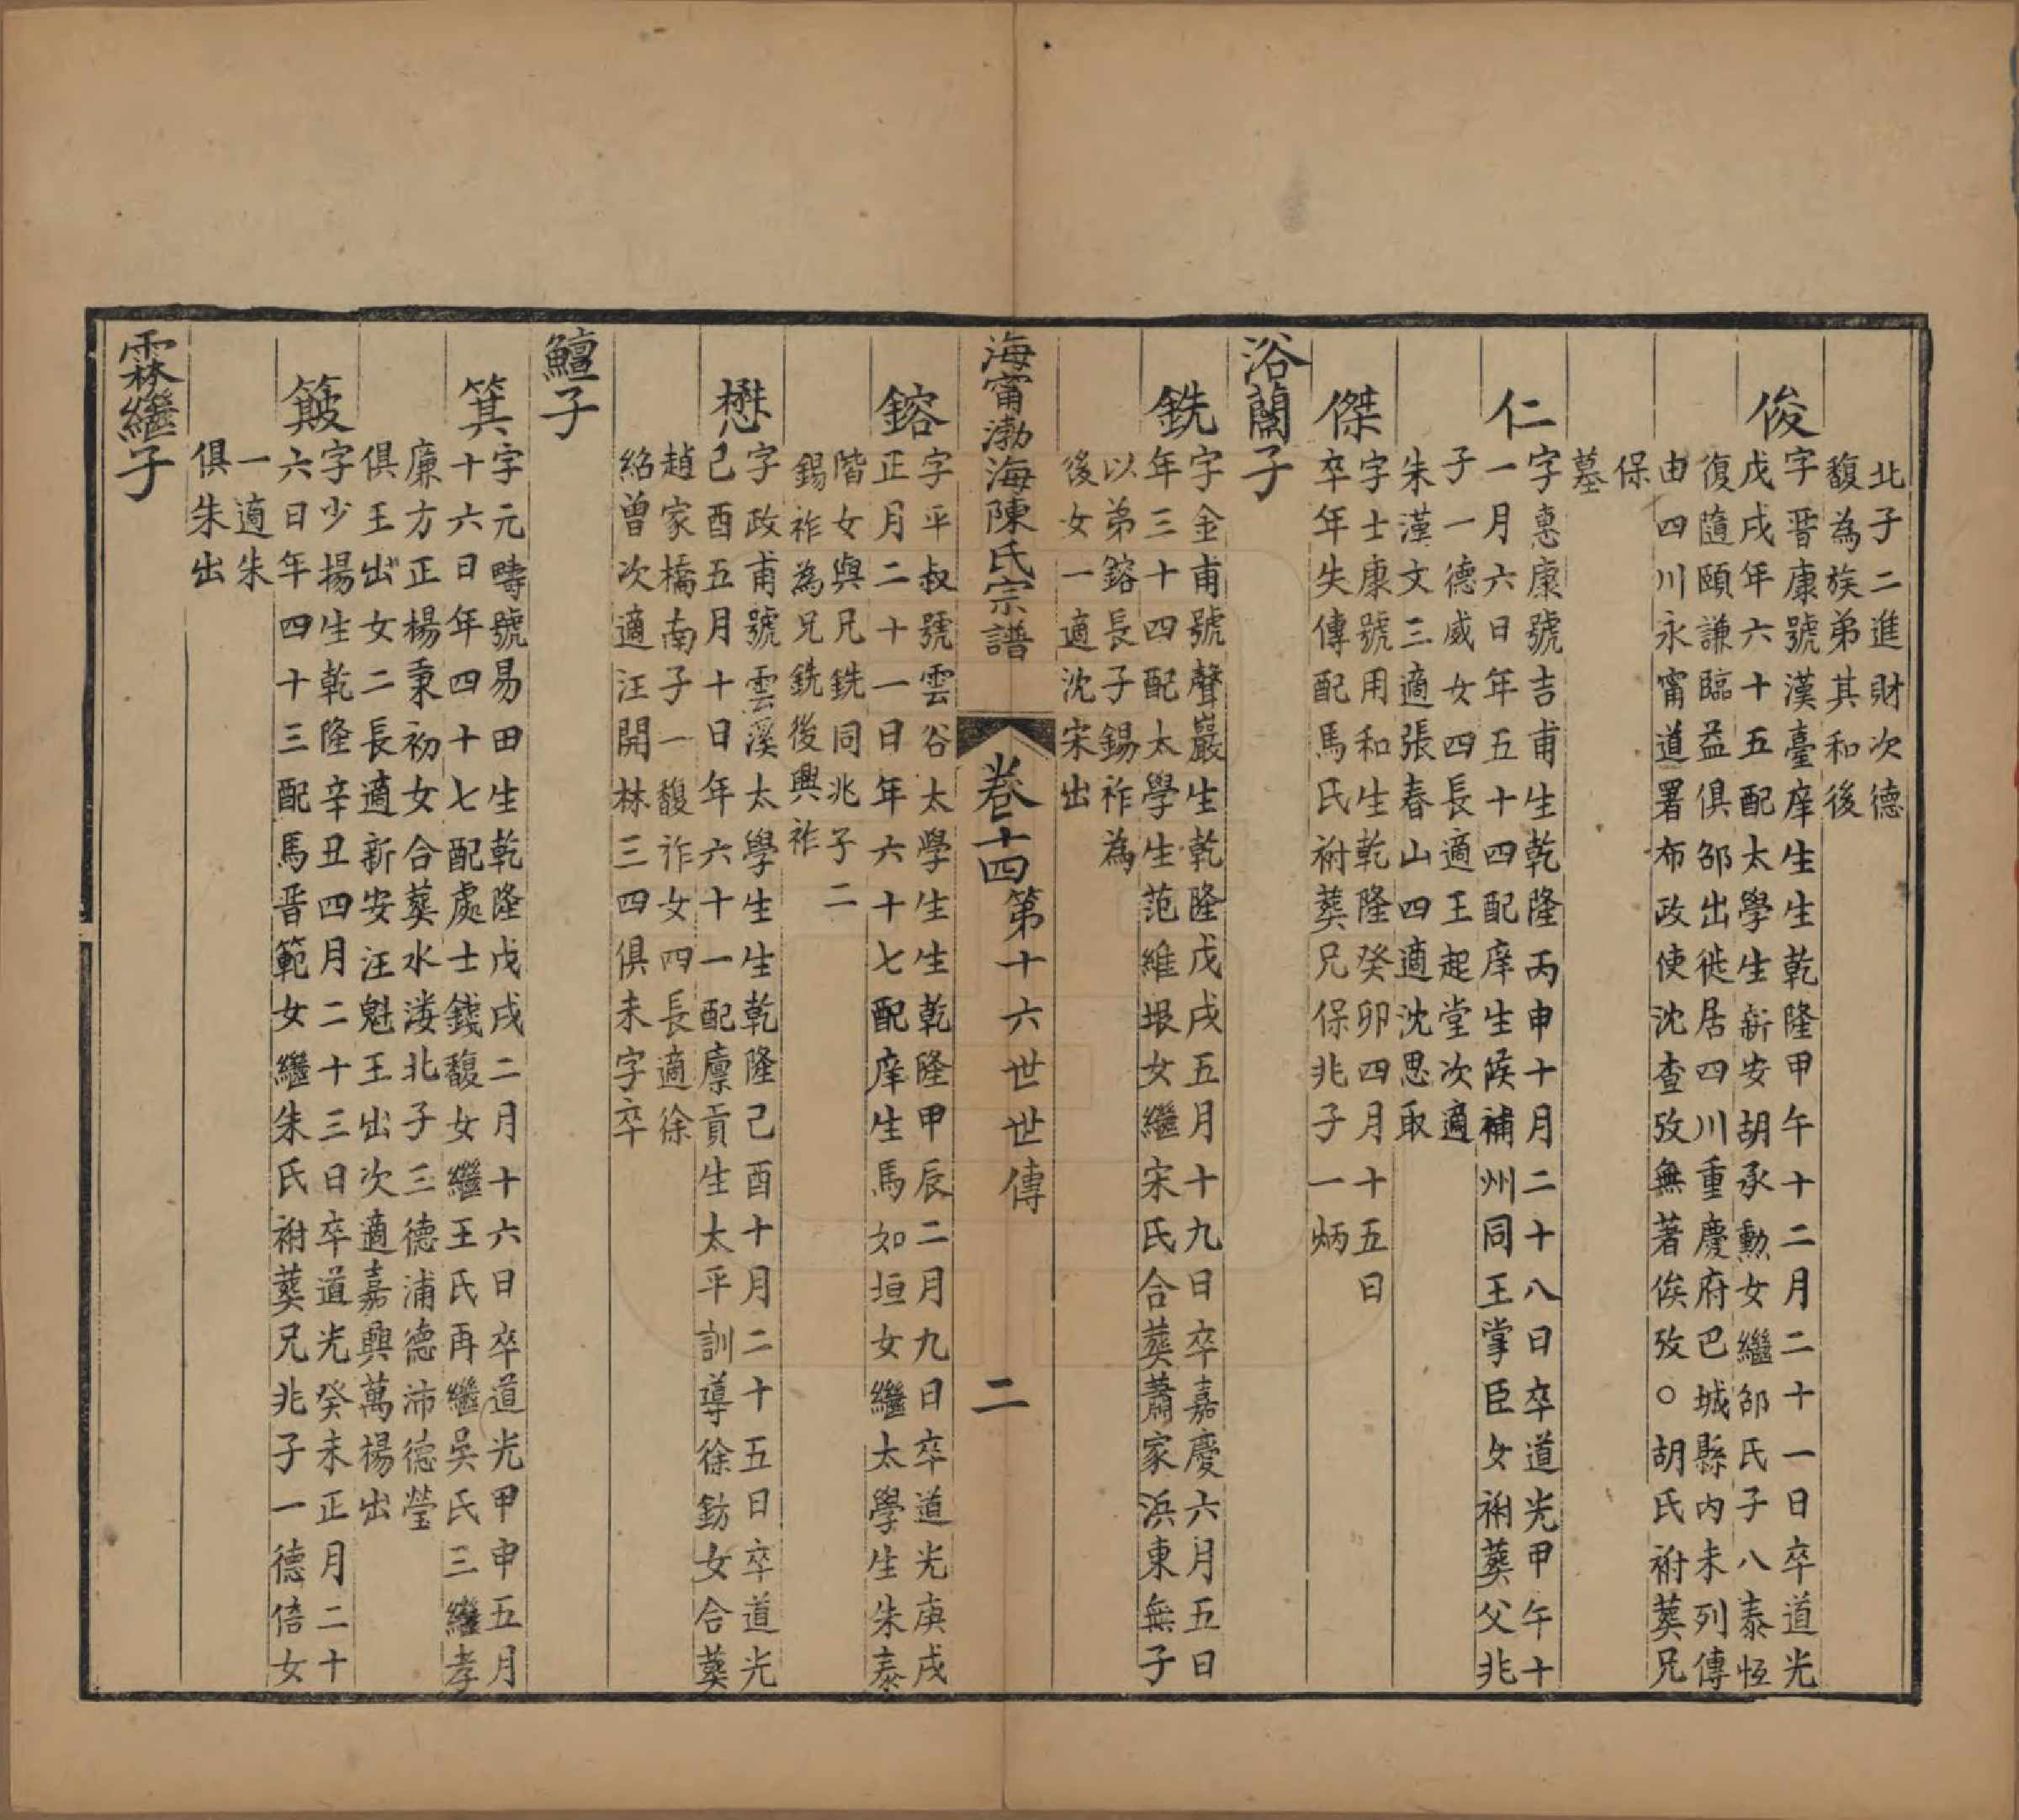 北子二進財次德
馥為族弟其和後
俊
字晋康號漢臺庠生生乾隆甲午十二月二十一日卒道光
戊戌年六十五配太學生新安胡承勲女繼邰氏子八泰恆
復隨頤謙臨益俱邰出徙居四川重慶府巴城縣內未列傳
由四川永甯道署布政使沈查攷無著俟攷○胡氏祔葬兄
保
墓
仁
字惠康號吉甫生乾隆丙申十月二十八日卒道光甲午十
一月六日年五十四配庠生候補州同王掌臣女祔葬父兆
子一德威女四長適王起堂次適
朱漢文三適張春山四適沈思取
傑
字士康號用和生乾隆癸卯四月十五日
卒年失傳配馬氏祔葬兄保兆子一炳
浴蘭子
銑
字金甫號聲巖生乾隆戊戌五月十九日卒嘉慶六月五日
年三十四配太學生范維垠女繼宋氏合葬蕭家浜東無子
以弟鎔長子錫祚為
後女一適沈宋出
海甯渤海陳氏宗譜
卷十四第十六世世傳
二
鎔
字平叔號雲谷太學生生乾隆甲辰二月九日卒道光庚戌
正月二十一日年六十七配庠生馬如垣女繼太學生朱泰
階女與兄銑同兆子二
錫祚為兄銑後興祚
懋
字政甫號雲溪太學生生乾隆己酉十月二十五日卒道光
己酉五月十日年六十一配廪貢生太平訓導徐鈁女合葬
趙家橋南子一馥祚女四長適徐
紹曾次適汪開林三四俱未字卒
鱣子
箕
字元疇號易田生乾隆戊戌二月十六日卒道光甲申五月
十六日年四十七配處士錢馥女繼王氏再繼吳氏三繼孝
廉方正楊秉初女合葬水淒北子三德浦德沛德瑩
俱王出女二長適新安汪魁王出次適嘉興萬楊出
簸
字少揚生乾隆辛丑四月二十三日卒道光癸未正月二十
六日年四十三配馬晋範女繼朱氏祔葬兄兆子一德倍女
一適朱
俱朱出
霖繼子